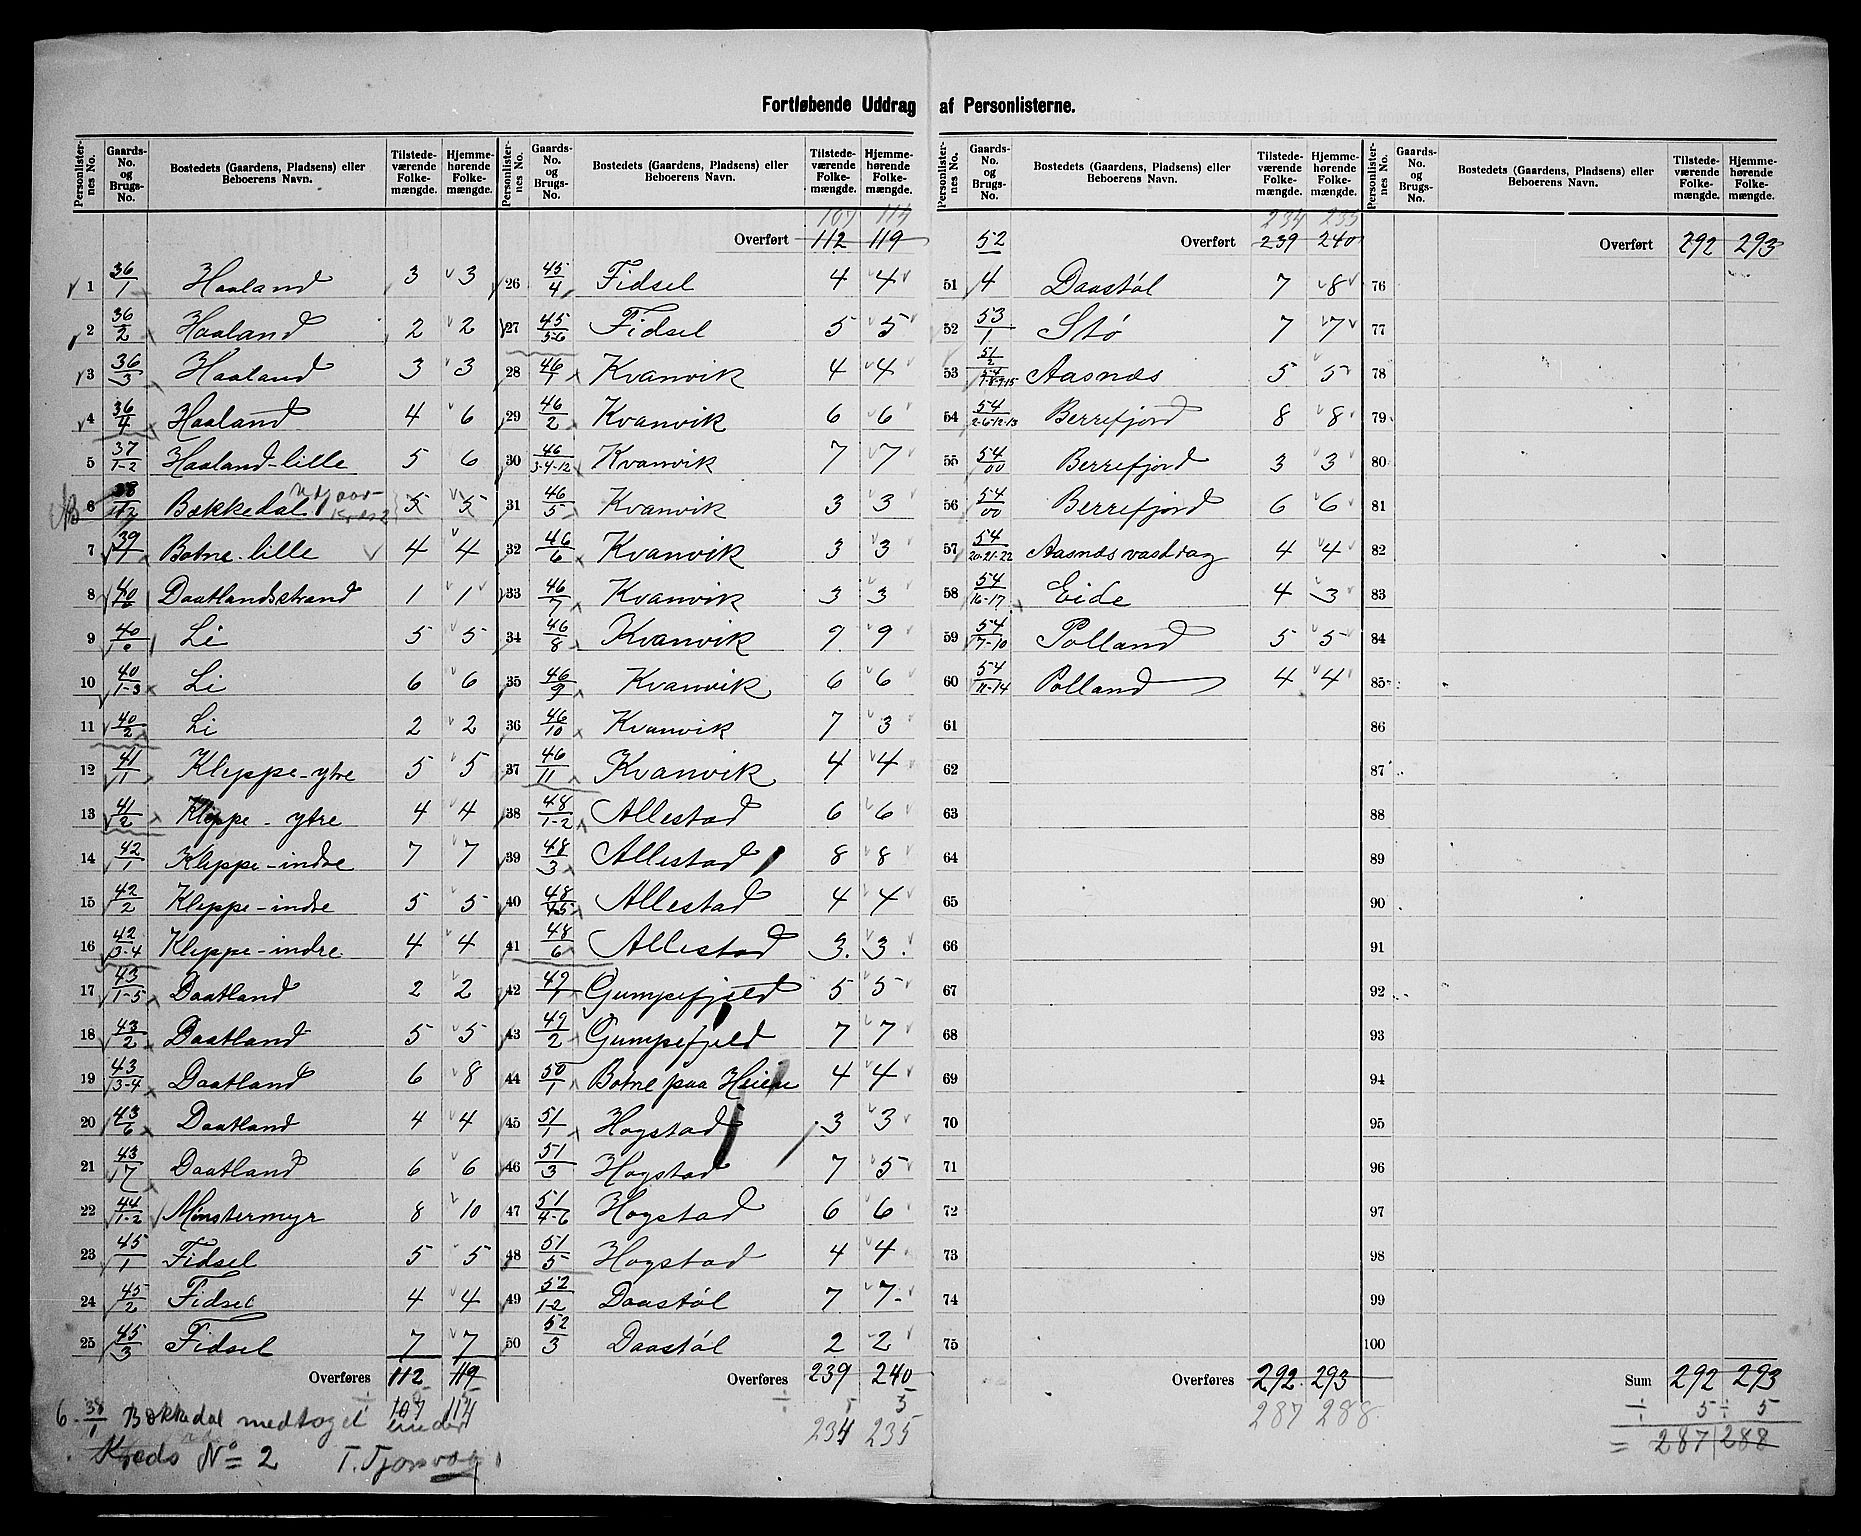 Fortløbende Uddrag af Personlisterne.
Personlisternes No. | Gaards-No. og Brugs-No. | Bostedets (Gaardens, Pladsens) eller Beboerens Navn. | Tilstedeværende Folkemængde. | Hjemmehørende Folkemængde.
1 36/1 Haaland 3 3
2 36/2 Haaland 2 2
3 36/3 Haaland 3 3
4 36/4 Haaland 4 6
5 37/1-2 Haaland-lille 5 6
6 38/1-2 Bækkedal 5 5
7 39/1 Botne-lille 4 4
8 40 Daatlandsstrand 1 1
9 40 Li 5 5
10 40/1-3 Li 6 6
11 40/2 Li 2 2
12 41/1 Kleppe-ytre 5 5
13 41/2 Kleppe-ytre 4 4
14 42/1 Kleppe-indre 7 7
15 42/2 Kleppe-indre 5 5
16 42/3-4 Kleppe-indre 4 4
17 43/1-5 Daatland 2 2
18 43/2 Daatland 5 5
19 43/3-4 Daatland 6 8
20 43/6 Daatland 4 4
21 43/7 Daatland 6 6
22 44/1-2 Mønstermyr 8 10
23 45/1 Fidsel 5 5
24 45/2 Fidsel 4 4
25 45/3 Fidsel 7 7
Overføres 112 119
÷ 5 5
107 114
6 - 38/1 Bækkedal medtaget under
Kreds No 2 T. Tjorsvag
Personlisternes No. | Gaards-No. og Brugs-No. | Bostedets (Gaardens, Pladsens) eller Beboerens Navn. | Tilstedeværende Folkemængde. | Hjemmehørende Folkemængde.
107 114
Overført 112 119
26 45/4 Fidsel 4 4
27 45/5-6 Fidsel 5 5
28 46/1 Kvanvik 4 4
29 46/2 Kvanvik 6 6
30 46/3-4-12 Kvanvik 7 7
31 46/5 Kvanvik 3 3
32 46/6 Kvanvik 3 3
33 46/7 Kvanvik 3 3
34 46/8 Kvanvik 9 9
35 46/9 Kvanvik 6 6
36 46/10 Kvanvik 7 3
37 46/11 Kvanvik 4 4
38 48/1-2 Allestad 6 6
39 48/3 Allestad 8 8
40 48/4-5 Allestad 4 4
41 48/6 Allestad 3 3
42 49/1 Gumpefjeld 5 5
43 49/2 Gumpefjeld 7 7
44 50/1 Botne paa Heien 4 4
45 51/1 Hogstad 3 3
46 51/3 Hogstad 7 5
47 51/4-6 Hogstad 6 6
48 51/5 Hogstad 4 4
49 52/1-2 Daastøl 7 7
50 52/3 Daastøl 2 2
Overføres 239 240
÷ 5 5
234 235
Personlisternes No. | Gaards-No. og Brugs-No. | Bostedets (Gaardens, Pladsens) eller Beboerens Navn. | Tilstedeværende Folkemængde. | Hjemmehørende Folkemængde.
234 235
Overført 239 240
51 52/4 Daastøl 7 8
52 53/1 Stø 7 7
53 51/2 54/1-8-9-15 Aasnæs 5 5
54 54/2-6-12-13 Berrefjord 8 8
55 54/00 Berrefjord 3 3
56 54/00 Berrefjord 6 6
57 54/20-21-22 Aasnæs vasdrag 4 4
58 54/16-17 Eide 4 3
59 54/7-10 Polland 5 5
60 54/11-14 Polland 4 4
61
62
63
64
65
66
67
68
69
70
71
72
73
74
75
Overføres 292 293
287 288
Personlisternes No. | Gaards-No. og Brugs-No. | Bostedets (Gaardens, Pladsens) eller Beboerens Navn. | Tilstedeværende Folkemængde. | Hjemmehørende Folkemængde.
Overført 292 293
76
77
78
79
80
81
82
83
84
85
86
87
88
89
90
91
92
93
94
95
96
97
98
99
100
Sum 292 293
÷ 5 ÷ 5
= 287 288